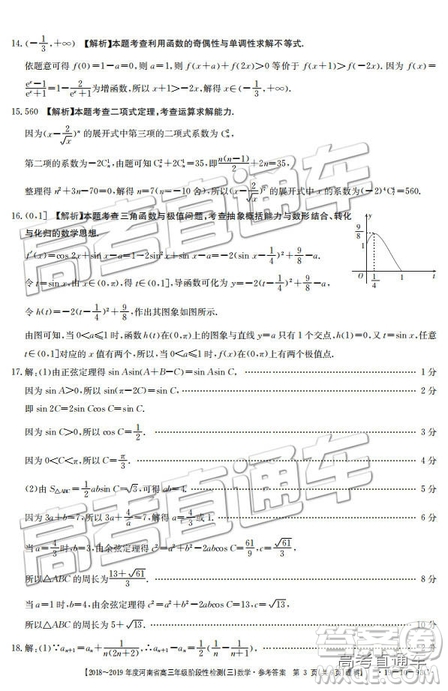 14.(-1/3,+∞) 【解析】本题考查利用函数的奇偶性与单调性求解不等式.
依题意可得 f(0)=1-a=0,则 a=1,则 f(x+a)+f(2x)>0 等价于 f(x+1)>-f(2x)=f(-2x).因为 f(x)=
(e^x-1)/(e^x+1)为增函数,所以 x+1>-2x,解得 x∈(-1/3,+∞).
15.560 【解析】本题考查二项式定理,考查运算求解能力.
因为(x-2/√x)^n 的展开式中第三项的二项式系数为 C_n^2,
第二项的系数为-2C_n^1,由 C_n^2+2C_n^1=35,即n(n-1)/2+2n=35,
整理得 n²+3n-70=0,解得 n=7(n=-10 舍),所以(x-2/√x)^7 的展开式中 x 的系数为(-2)^4C_7^4=560.
16.(0,1] 【解析】本题考查三角函数与极值问题,考查抽象概括能力与数形结合、转化
与化归的数学思想.
f′(x)=cos 2x+sin x-a=1-2sin²x+sin x-a=-2(sin x-1/4)²+9/8-a,
令 t=sin x,由 x∈(0,π),得 t∈(0,1],导函数可化为 y=-2(t-1/4)²+9/8-a,
令 h(t)=-2(t-1/4)²+9/8,作出其图象如图所示.
9/8
1
O
1/4
1
t
由图可知,当 0<a≤1 时,函数 h(t)在(0,π)上的图象与直线 y=a 只有 1 个交点,h(1)=0,又 t=sin x,任意
t∈(0,1]对应的 x 值有两个,所以当 0<a≤1 时,f(x)在(0,π)上有两个极值点.
17.解:(1)由正弦定理得 sin Asin(A+B-C)=sin Asin C. 1 分
因为 sin A>0,所以 sin(π-2C)=sin C. 2 分
即 sin 2C=2sin Ccos C=sin C.
因为 sin C>0,所以 cos C=1/2. 3 分
因为 0<C<π,所以 C=π/3. 4 分
(2)由 S△ABC=1/2 absin C=√3,可得 ab=4. 5 分
因为 3a+b=7,所以 3a+4/a=7,解得 a=4/3或 1. 6 分
当 a=4/3时,b=3,由余弦定理得 c²=a²+b²-2abcos C=61/9,c=√61/3,
所以△ABC 的周长为(13+√61)/3. 8 分
当 a=1 时,b=4,由余弦定理得 c²=a²+b²-2abcos C=13
所以△ABC 的周长为
18.解:(1)∵a_{n+1}=a_n+
2018~2019 年度河南省高三年级阶段性检测(三)数学·参考答案 第 3 页
高考直通车
高考直通车
高考直通车